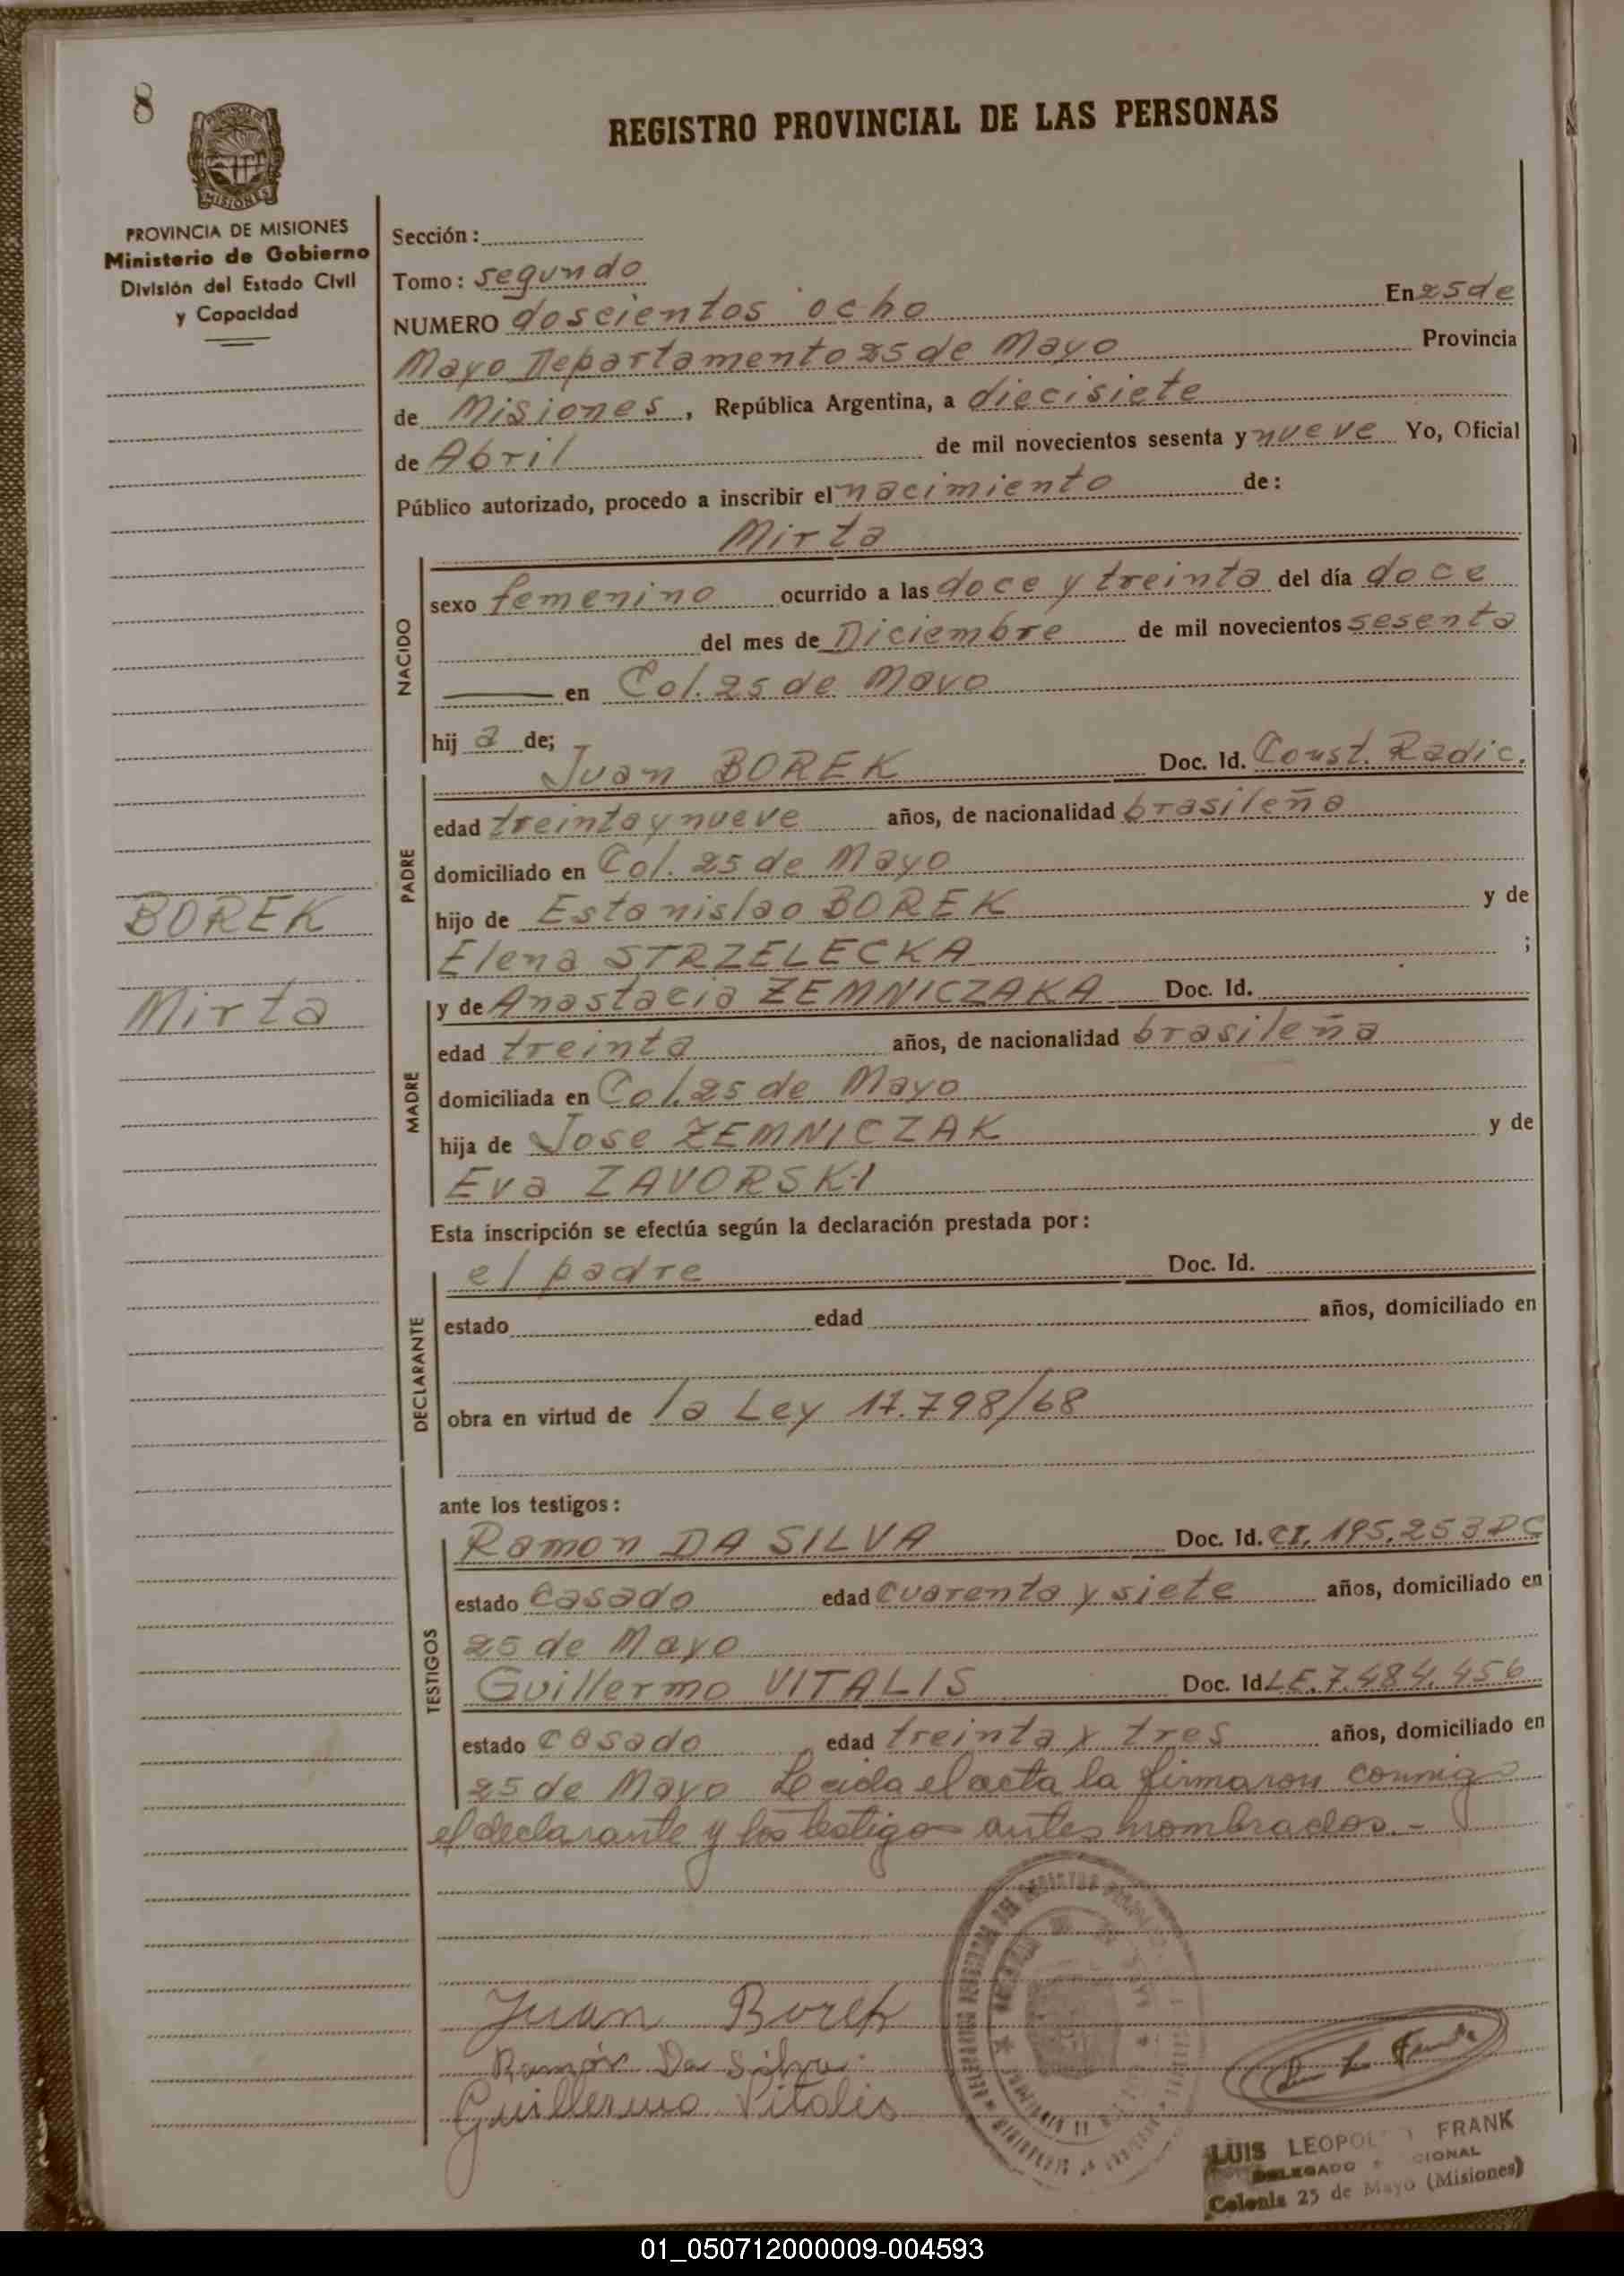 8
REGISTRO PROVINCIAL DE LAS PERSONAS
MISIONES
PROVINCIA DE MISIONES
Ministerio de Gobierno
División del Estado Civil
y Capacidad
BOREK
Mirta
Sección:
Tomo: segundo
NUMERO doscientos ocho En 25 de
Mayo Departamento 25 de Mayo Provincia
de Misiones, República Argentina, a diecisiete
de Abril de mil novecientos sesenta y nueve Yo, Oficial
Público autorizado, procedo a inscribir el nacimiento de:
Mirta
NACIDO
sexo femenino ocurrido a las doce y treinta del día doce
del mes de Diciembre de mil novecientos sesenta
en Col. 25 de Mayo
hij a de;
PADRE
Juan BOREK Doc. Id. Const. Radic.
edad treinta y nueve años, de nacionalidad brasileña
domiciliado en Col. 25 de Mayo
hijo de Estanislao BOREK y de
Elena STRZELECKA ;
MADRE
y de Anastacia ZEMNICZAKA Doc. Id.
edad treinta años, de nacionalidad brasileña
domiciliada en Col. 25 de Mayo
hija de Jose ZEMNICZAK y de
Eva ZAVORSKI
Esta inscripción se efectúa según la declaración prestada por:
DECLARANTE
el padre Doc. Id.
estado edad años, domiciliado en
obra en virtud de la Ley 17.798/68
ante los testigos:
TESTIGOS
Ramon DA SILVA Doc. Id. CI. 195.253
estado Casado edad cuarenta y siete años, domiciliado en
25 de Mayo
Guillermo VITALIS Doc. Id. LE. 7.484.456
estado casado edad treinta y tres años, domiciliado en
25 de Mayo Leida el acta la firmaron conmigo
el declarante y los testigos antes nombrados.-
Juan Borek
Ramón Da Silva
Guillermo Vitalis
LUIS LEOPOL FRANK
DELEGADO CIONAL
Colonia 25 de Mayo (Misiones)
01_050712000009-004593